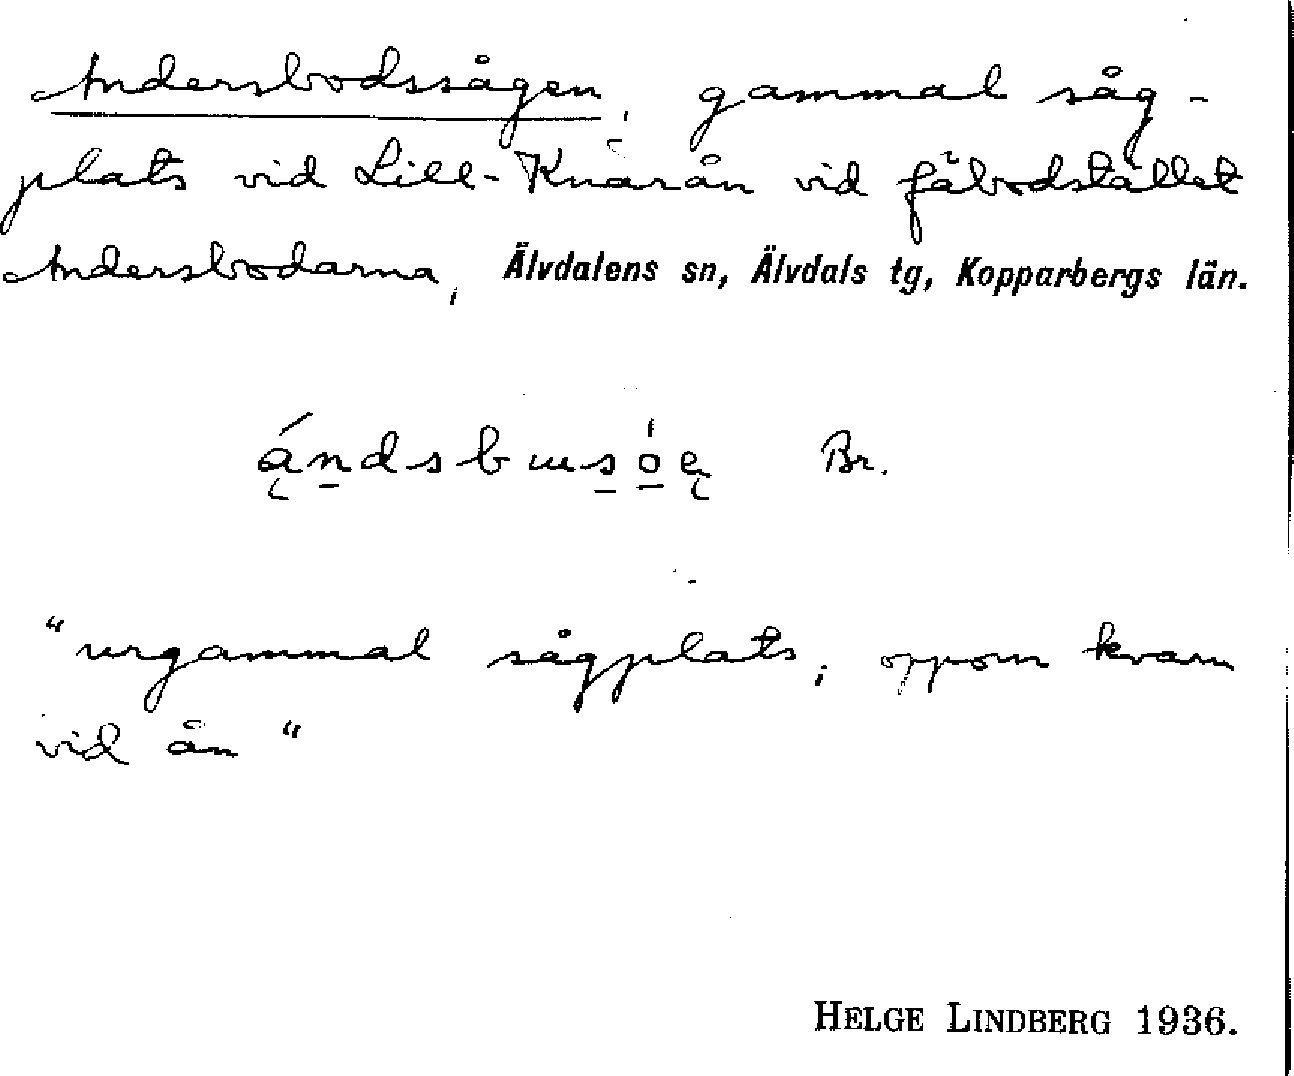 Andersbodssågen, gammal såg-
plats vid Lill-Knarån vid fäbodstället
Andersbodarna, Älvdalens sn, Älvdals tg, Kopparbergs län.
Br.
"urgammal sågplats, oppom kvarn
vid ån"
HELGE LINDBERG 1936.